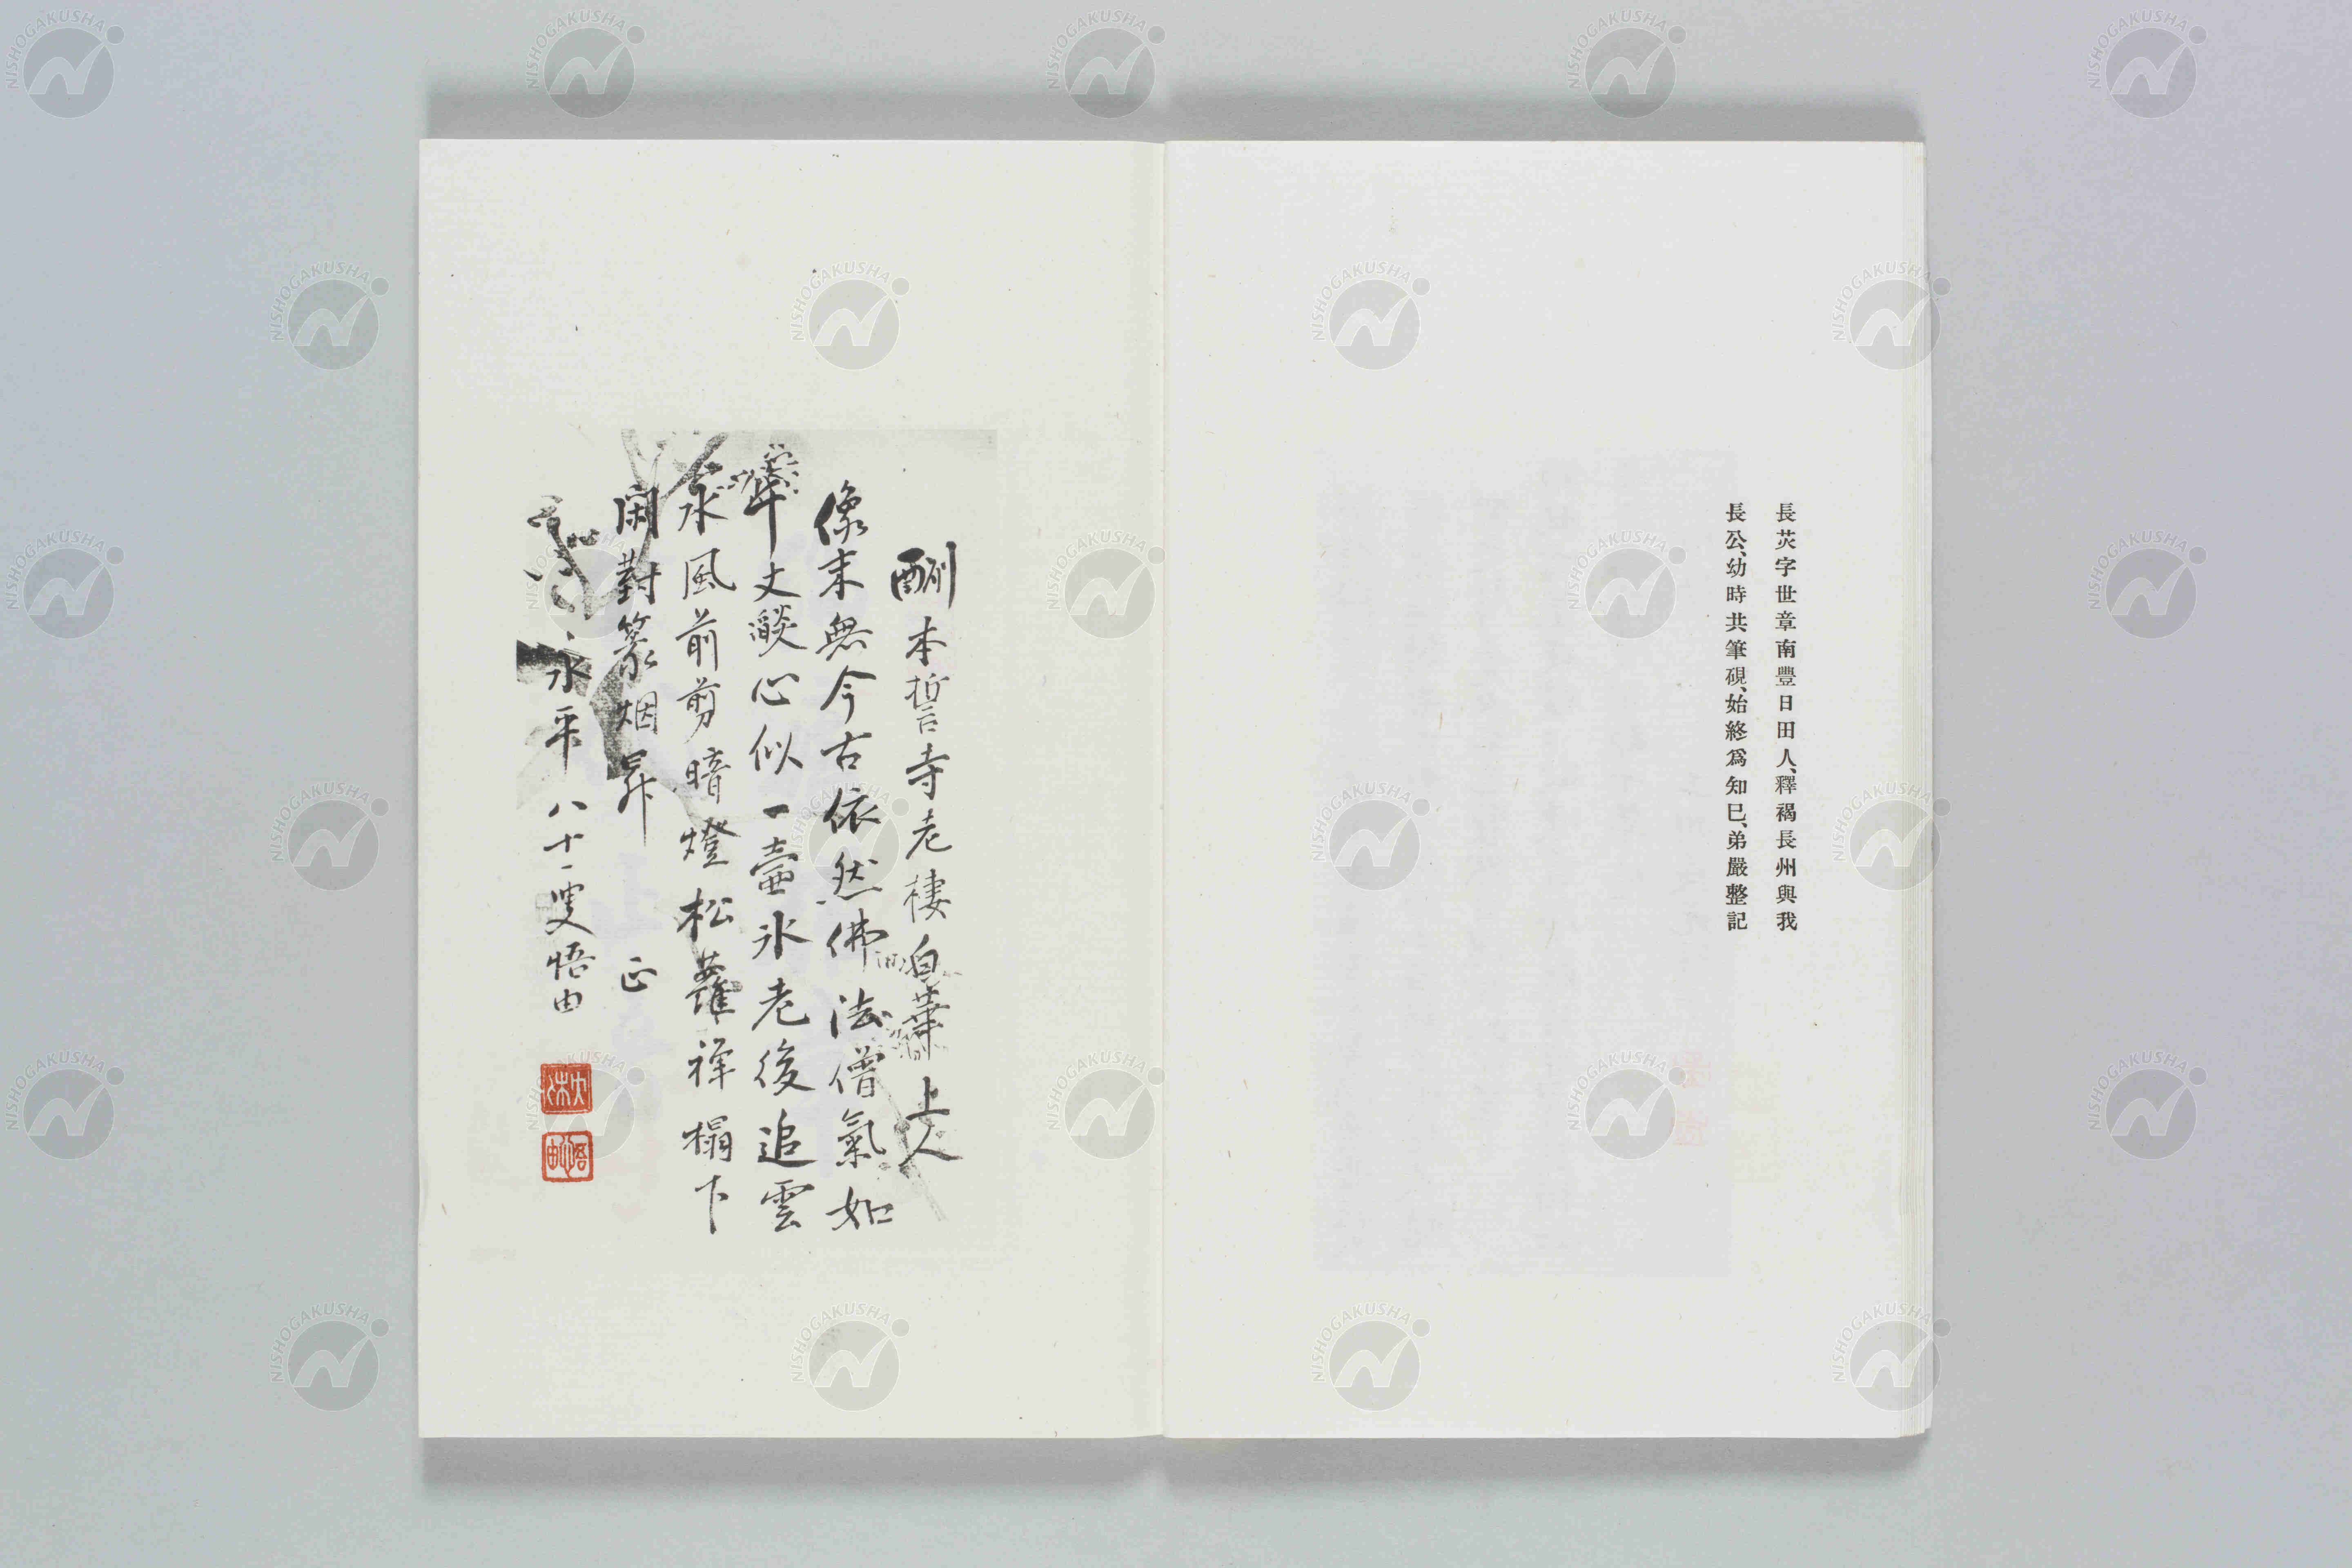 長炗字世章南豐日田人、釋褐長州與我
長公、幼時共筆硯、始終爲知已、弟嚴整記
酬本誓寺老棲白華上人
像末無今古依然佛法僧氣如
千丈燄心似一壺氷老後追雲
水風前剪暗燈松蘿禪榻下
閑對篆烟昇 正
永平八十一叟悟由
大休
悟由
NISHOGAKUSHA